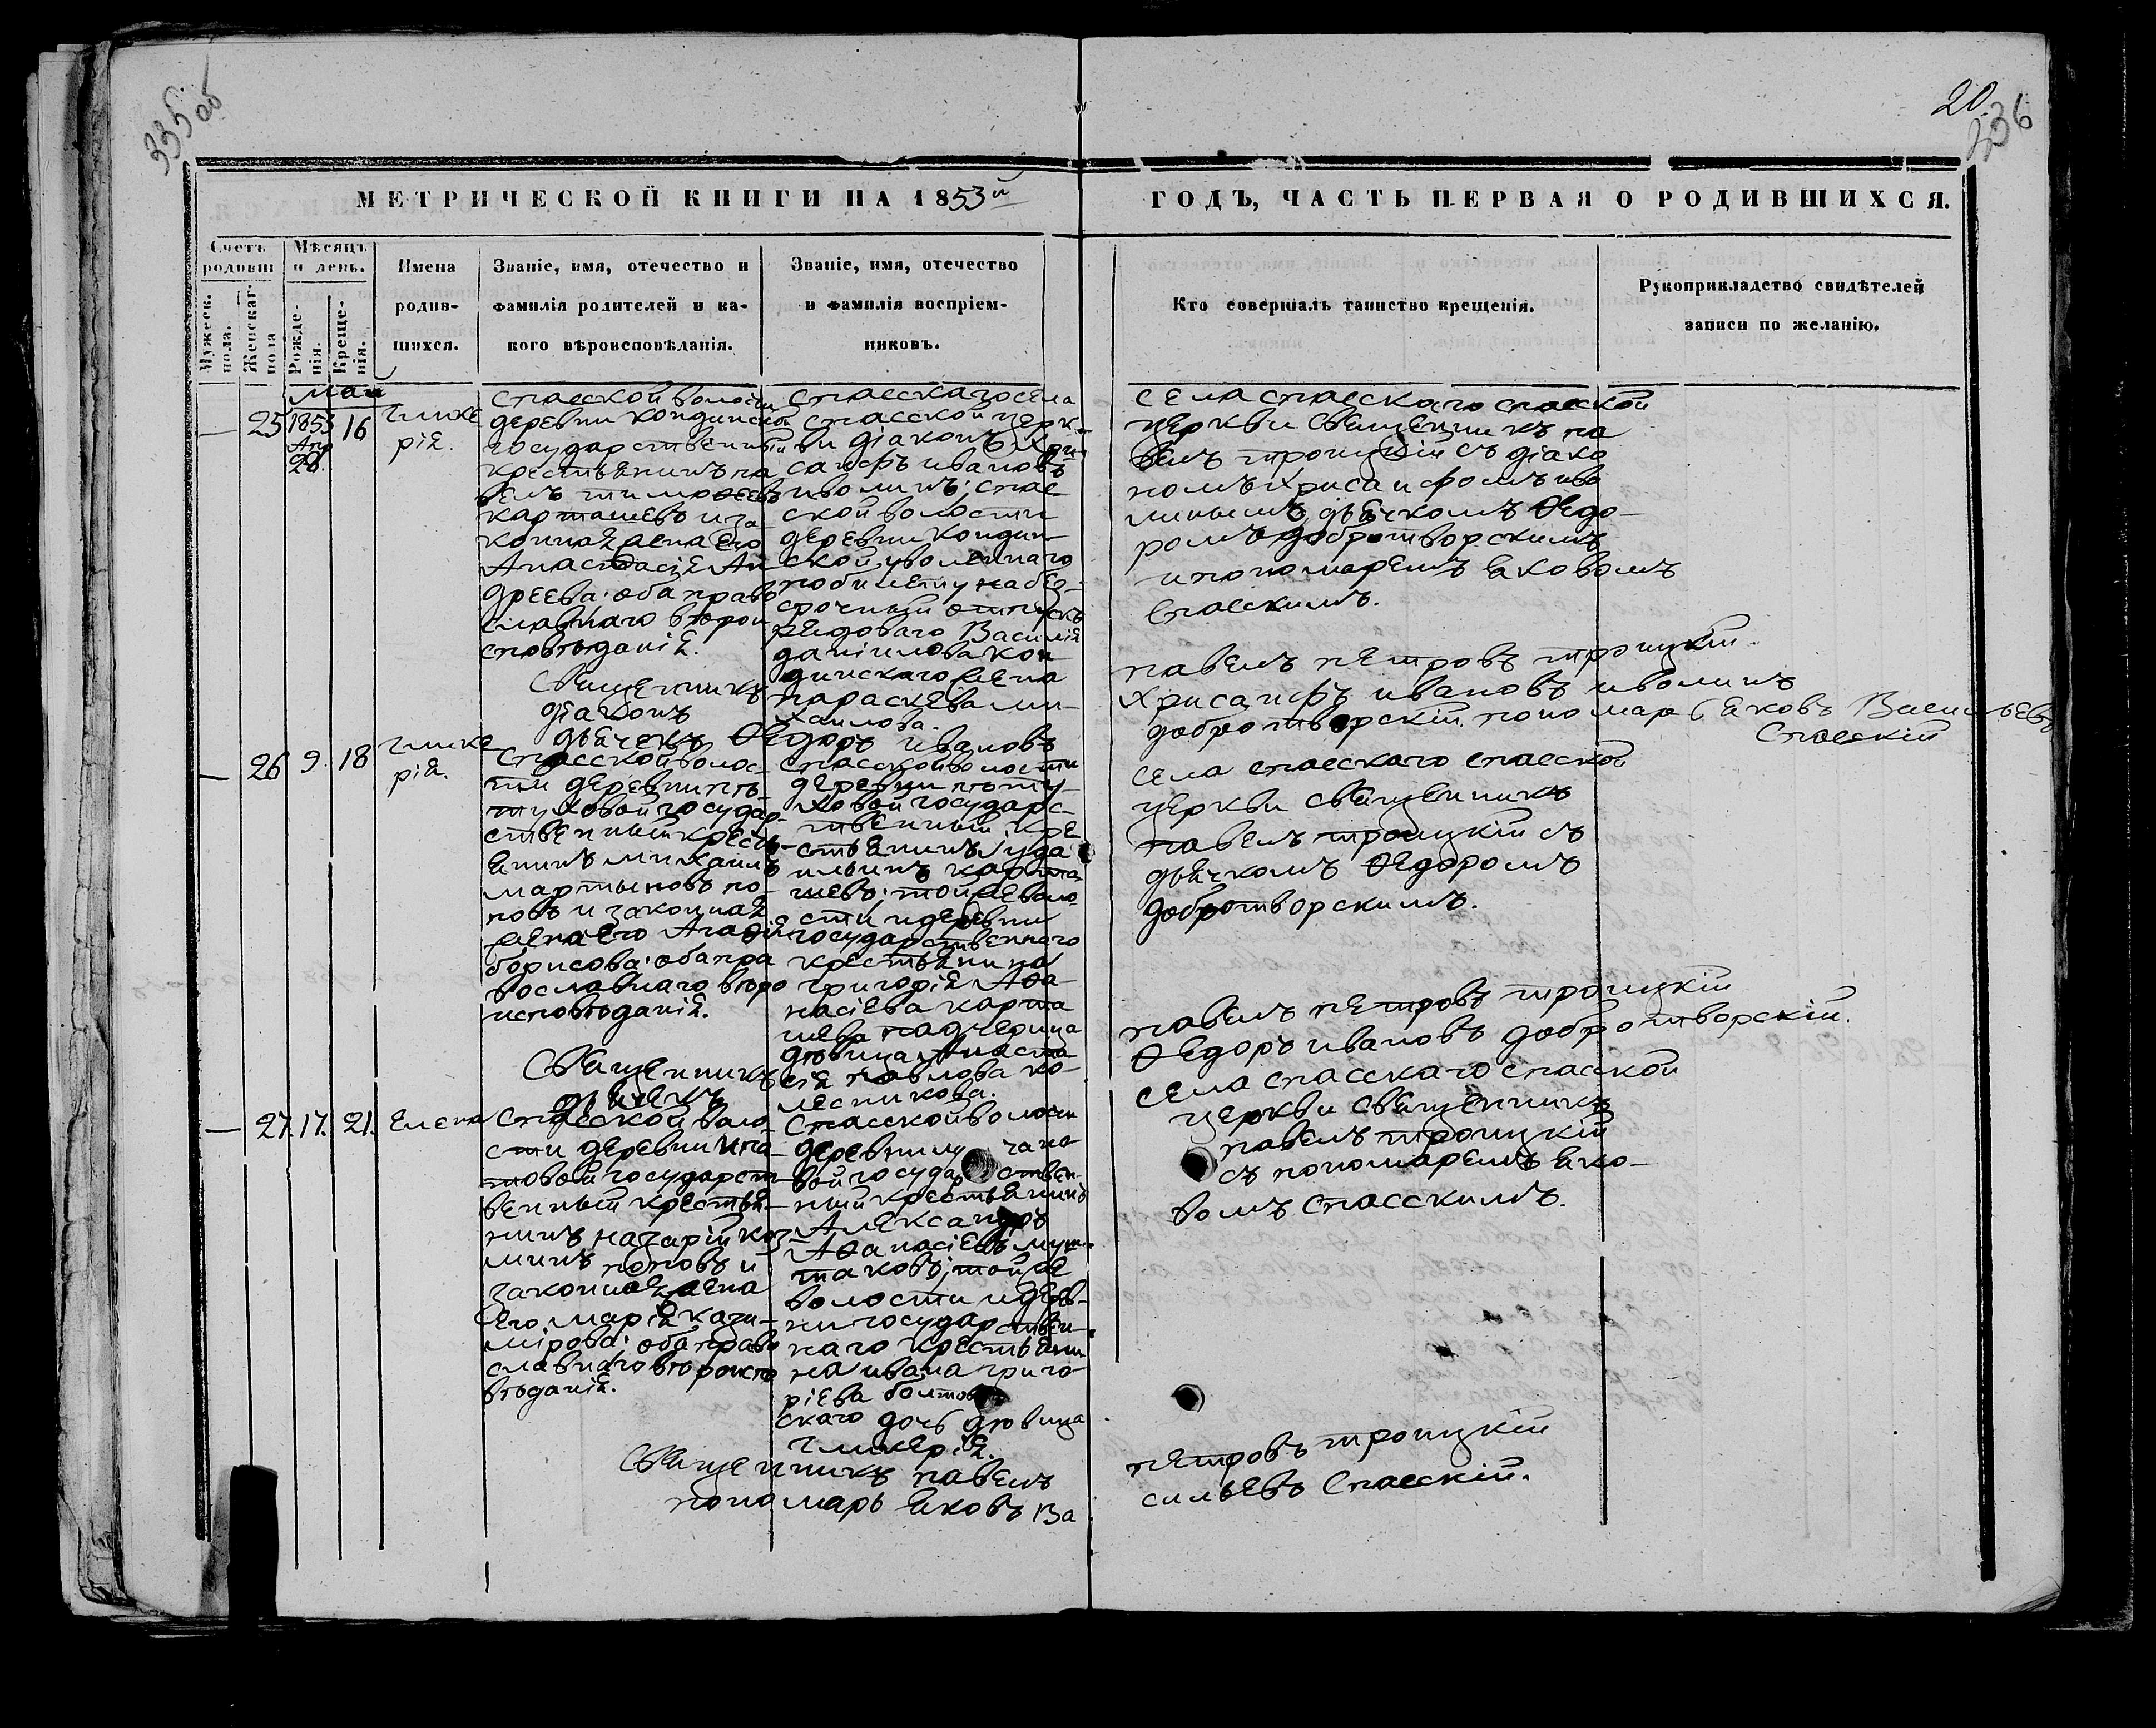 335 об
20.
336
МЕТРИЧЕСКОЙ КНИГИ НА 1853й
ГОДЪ, ЧАСТЬ ПЕРВАЯ О РОДИВШИХСЯ.
Счетъ
родивш
Мужеск.
пола.
Женскаг.
пола
Мѣсяцъ
и день.
Рожде-
нія.
Креще-
нія.
Имена
родив-
шихся.
Званіе, имя, отечество и
фамилія родителей и ка-
кого вѣроисповѣданія.
Званіе, имя, отечество
и фамилія воспріем-
никовъ.
Кто совершалъ таинство крещенія.
Рукоприкладство свидѣтелей
записи по желанію.
маи
—
25
1853
Апр
28.
16
Глике
рія.
спасской волости
деревни кондинской
государственный
крестьянинъ па
велъ тимоѳеевъ
карташевъ и за-
конная жена его
Анастасія Ан
дреева: оба право
славнаго вѣрои
сповѣданія.
спасскаго села
спасской церк-
ви діаконъ Хри
санфъ ивановъ
иволинъ; спас-
ской волости
деревни кондин-
ской, уволеннаго
по билету на без-
срочный отпускъ
рядоваго Василія
даніилова кон
динскаго жена
параскева ми-
хаилова.
села спасскаго спасской
церкви священникъ па
велъ троицкій съ діако
номъ Хрисанфомъ иво
линымъ, дьячкомъ Ѳедо-
ромъ добротворскимъ
и пономаремъ яковомъ
спасскимъ.
Священникъ павелъ петровъ троицкій
діаконъ Хрисанфъ ивановъ иволинъ
дьячекъ Ѳедоръ ивановъ добротворскій. пономарь яковъ Васильевъ
Спасскій
—
26
9.
18
Глике
рія.
Спасской волос-
ти деревни пѣ-
туховой государ-
ственный кресть-
янинъ михаилъ
мартыновъ по-
повъ и законная
жена его Агаѳія
борисова: оба пра
вославнаго вѣро
исповѣданія.
спасской волости
деревни пѣту-
ховой государс-
твенный кре
стьянинъ іуда
ильинъ карта-
шевъ; той же воло
сти и деревни
государственнаго
крестьянина
григорія Аѳа-
насіева карта
шева падчерица
дѣвица Анаста
сія павлова ко-
лесникова.
села спасскаго спасской
церкви священникъ
павелъ троицкій съ
дьячкомъ Ѳедоромъ
добротворскимъ.
Священникъ павелъ петровъ троицкій
дьячекъ Ѳедоръ ивановъ добротворскій.
—
27.
17.
21.
Елена
Спасской воло
сти деревни ипа-
товой государст
венный крестья-
нинъ назарій коз
минъ поповъ и
законная жена
его марія кази-
мірова: оба право
славнаго вѣроиспо
вѣданія.
Спасской волости
вой государственн-
ный крестьянинъ
Александръ
Аѳанасіевъ муш-
таковъ; той же
волости и дерев-
ни государствен-
наго крестьяни
на ивана григо-
ріева
скаго дочь дѣвица
гликерія.
села спасскаго спасской
церкви священникъ
павелъ троицкій
съ пономаремъ яко-
вомъ спасскимъ.
Священникъ павелъ петровъ троицкій
пономарь яковъ Васильевъ Спасскій.